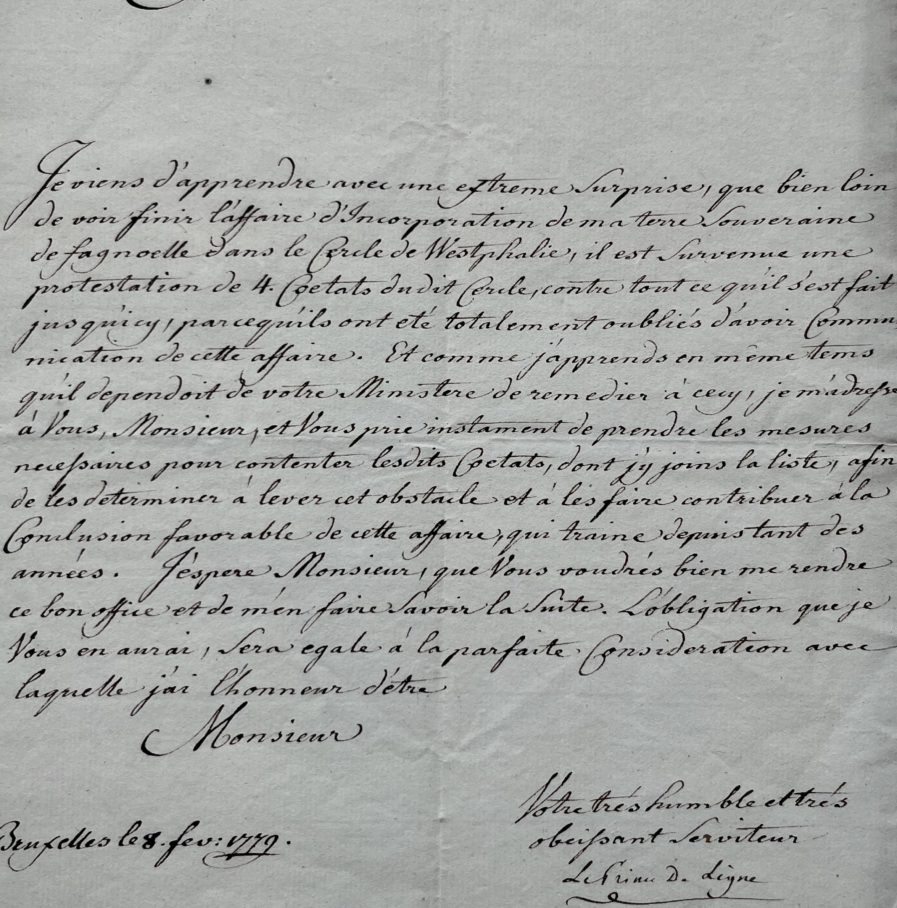 Je viens d'apprendre avec une extreme Surprise, que bien loin
de voir finir l'affaire d'Incorporation de ma terre Souveraine
de fagnoelle dans le Cercle de Westphalie, il est Survenue une
protestation de 4. Coetats dudit Cercle, contre tout ce qu'il s'est fait
jusqu'icy, parcequ'ils ont eté totalement oubliés d'avoir Commu-
nication de cette affaire. Et comme j'apprends en même tems
qu'il dependoit de votre Ministere de remedier à cecy, je m'adresse
à Vous, Monsieur, et Vous prie instament de prendre les mesures
necessaires pour contenter lesdits Coetats, dont j'y joins la liste, afin
de les déterminer à lever cet obstacle et à les faire contribuer à la
Conclusion favorable de cette affaire, qui traine depuis tant des
années. J'éspere Monsieur, que Vous voudrés bien me rendre
ce bon office et de m'en faire Savoir la Suite. L'obligation que je
Vous en aurai, Sera egale à la parfaite Consideration avec
laquelle j'ai l'honneur d'étre
Monsieur
Votre trés humble et trés
obeissant Serviteur
Bruxelles le 8. fev: 1779.
Le Prince De Ligne